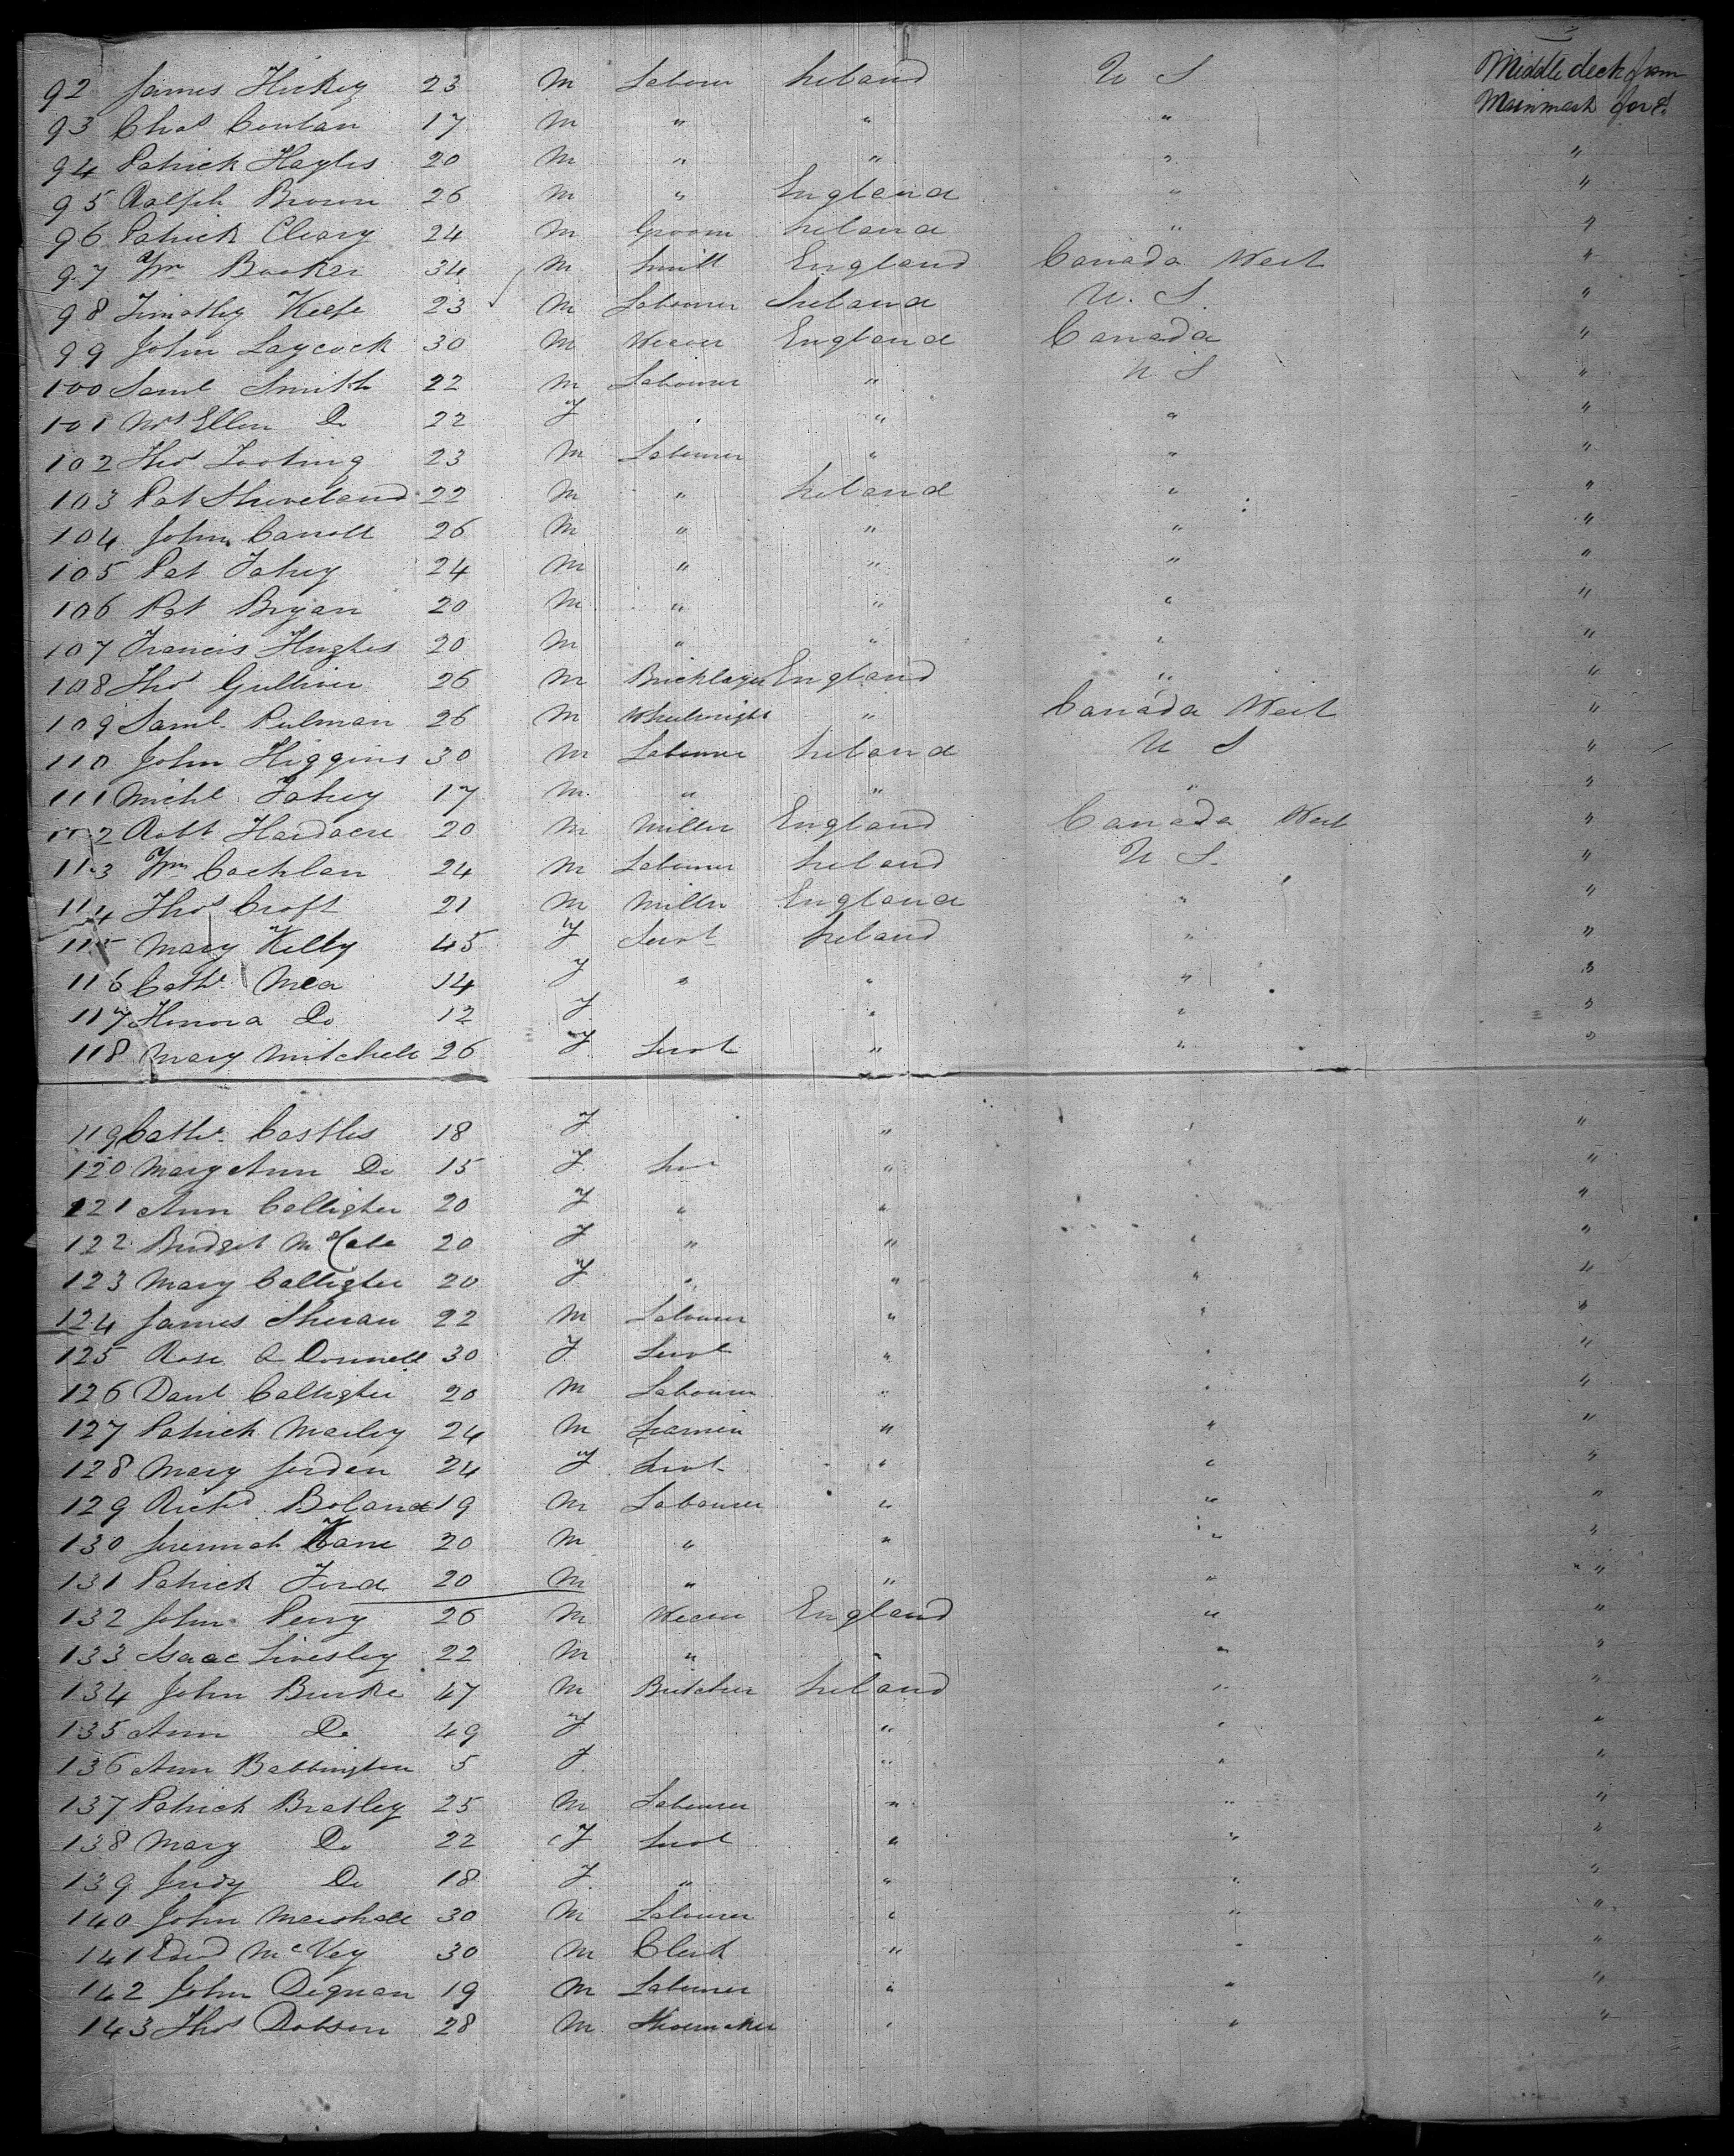 92 James Hickey 23 M Labour Ireland U S Middle deck from
Mainmast for'd
93 Chas Conlan 17 M " " "
94 Patrick Hayles 20 M " " " "
95 Ralph Brown 26 M " England " "
96 Patrick Cleary 24 M Groom Ireland " "
97 Wm Booker 34 M Smith England Canada West "
98 Timothy Keefe 23 M Labourer Ireland U. S. "
99 John Laycock 30 M Weaver England Canada "
100 Saml Smith 22 M Labourer " U S "
101 Mrs Ellen Do 22 F " " " "
102 Thos Tooting 23 M Labourer " " "
103 Pat Shiveland 22 M " Ireland " "
104 John Carroll 26 M " " " "
105 Pat Fahey 24 M " " " "
106 Pat Bryan 20 M " " " "
107 Francis Hughes 20 M " " " "
108 Thos Gulliver 26 M Bricklayer England " "
109 Saml. Pulman 26 M Wheelwright " Canada West "
110 John Higgins 30 M Labourer Ireland U S "
111 Michl Fahey 17 M " " " "
112 Robt Hardacre 20 M Miller England Canada West "
113 Wm Cochlan 24 M Labourer Ireland U S. "
114 Thos Croft 21 M Miller England " "
115 Mary Kelly 45 F Servt Ireland " "
116 Cathe Mea 14 F " " " "
117 Honora Do 12 F " " "
118 Mary Mitchell 26 F Servt " " "
119 Cathe. Castles 18 F " " "
120 Mary Ann Do 15 F " " "
121 Ann Colligher 20 F " " " "
122 Bridget McCabe 20 F " " " "
123 Mary Calligher 20 F " " " "
124 James Sheran 22 M Labourer " " "
125 Rose O Donnell 30 F Servt " " "
126 Danl Calligher 20 M Labourer " " "
127 Patrick Marley 24 M " " "
128 Mary Jordan 24 F Servt " " "
129 Richd Boland 19 M Labourer " " "
130 Jeremiah Kane 20 M " " " "
131 Patrick Ford 20 M " " " "
132 John Perry 26 M Weaver England " "
133 Isaac Livesley 22 M " " " "
134 John Burke 47 M Butcher Ireland " "
135 Ann Do 49 F " " "
136 Ann Babbington 5 F " " "
137 Patrick Bratley 25 M Labourer " " "
138 Mary Do 22 F Servt " " "
139 Judy Do 18 F " " " "
140 John Marshall 30 M Labourer " " "
141 Edwd McVey 30 M Clerk " " "
142 John Dignan 19 M Labourer " " "
143 Thos Dobson 28 M Shoemaker " " "